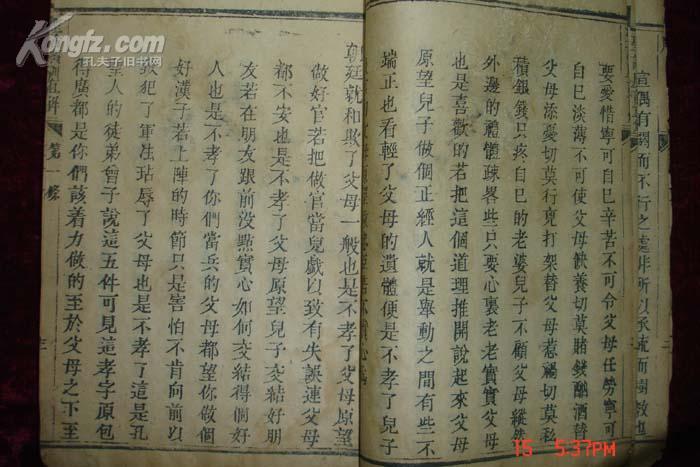 宣偶有閼而不行之處非所以承流而樹教也
要愛惜寧可自巳辛苦不可令父母任勞寧可
自巳淡薄不可使父母缺養切莫賭錢酗酒替
父母添憂切莫行兇打架替父母惹禍切莫私
積銀錢只疼自巳的老婆兒子不顧父母縱然
外邊的禮體疎畧些只要心裏老老實實父母
也是喜歡的若把這個道理推開說起來父母
原望兒子做個正經人就是舉動之間有些不
端正也看輕了父母的遺體便是不孝了兒子
朝廷就和欺了父母一般也是不孝了父母原望
做好官若把做官當兒戲以致有失誤連父母
都不安也是不孝了父母原望兒子交結好朋
友若在朋友跟前没點實心如何交結得個好
人也是不孝了你們當兵的父母都望你做個
好漢子若上陣的時節只是害怕不肯向前以
致犯了軍法玷辱了父母也是不孝了這是孔
聖人的徒弟曾子說這五件可見這孝字原包
得廣都是你們該着力做的至於父母之下至
訓直解 第一條 三
Kongfz.com
孔夫子旧书网
15 5:37PM